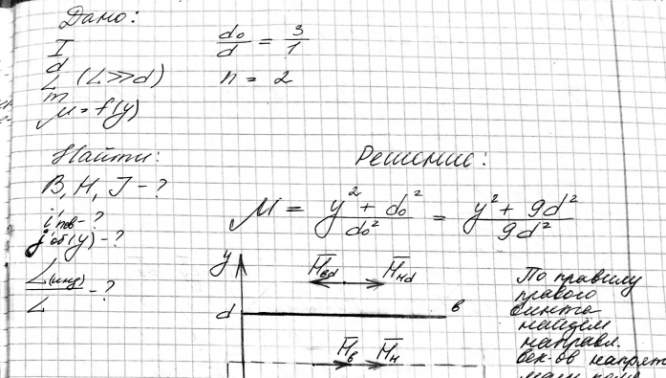 Дано:
I
d
L (L>>d)
m
μ = f(y)
d₀/d = 3/1
n = 2
Найти:
B, H, J - ?
i'пов - ?
j'об(y) - ?
L(инд)/L - ?
Решение:
μ = (y² + d₀²)/d₀² = (y² + 9d²)/9d²
y
H̅вd H̅нd
d в
H̅в H̅н
По правилу
правого
винта
найдём
направл.
век-ов напряж